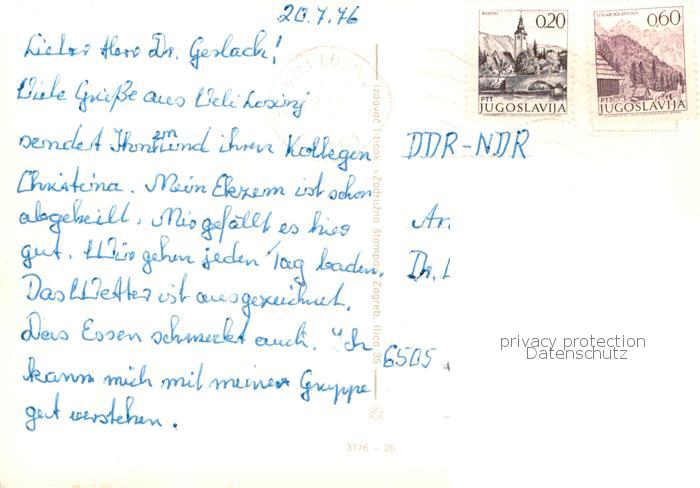 20.7.76
Lieber Herr Dr. Gerlach!
Viele Grüße aus Veli Losinj
sendet Ihnen und ihren Kollegen
Christina. Mein Ekzem ist schon
abgeheilt. Mir gefällt es hier
gut. Wir gehen jeden Tag baden.
Das Wetter ist ausgezeichnet.
Das Essen schmeckt auch. Ich
kann mich mit meiner Gruppe
gut verstehen.
Izdavač i tisak: »Zadružna štampa« Zagreb, Ilica 35
3176 - 35
0.20
PTT
JUGOSLAVIJA
LOGARSKA DOLINA
0.60
PTT
JUGOSLAVIJA
DDR-NDR
An
Dr.
6505
privacy protection
Datenschutz